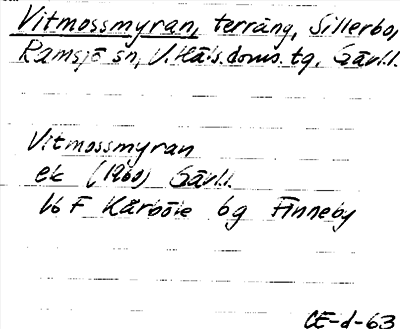 Vitmossmyran, terräng, Sillerbo,
Ramsjö sn, V. Häls. doms. tg, Gävl.l.
Vitmossmyran
ek (1960) Gävl.l.
16 F Kårböle 6g Finneby
CE-d-63